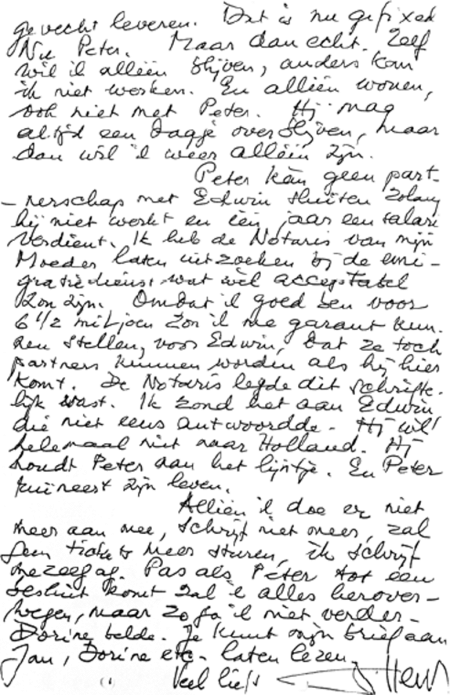 gevecht leveren. Dat is nu gefixed
Nu Peter. Maar dan echt. Zelf
wil ik alléén blijven, anders kan
ik niet werken. En alléén wonen,
ook niet met Peter. Hij mag
altijd een dagje overblijven, maar
dan wil ik weer alléén zijn.
Peter kan geen part-
-nerschap met Edwin sluiten zolang
hij niet werkt en één jaar een salaris
verdient. Ik heb de Notaris van mijn
Moeder laten uitzoeken bij de emi-
gratiedienst wat wel acceptabel
zou zijn. Omdat ik goed ben voor
6 1/2 miljoen zou ik me garant kun-
nen stellen, voor Edwin, dat ze toch
partners kunnen worden als hij hier
komt. De Notaris legde dit schrifte-
lijk vast. Ik zond het aan Edwin
die niet eens antwoordde. Hij wil
helemaal niet naar Holland. Hij
houdt Peter aan het lijntje. En Peter
ruïneert zijn leven.
Alléén ik doe er niet
meer aan mee, schrijf niet meer, zal
geen tickets meer sturen, ik schrijf
Pas als Peter tot een
besluit komt zal ik alles herover-
wegen, maar zo ga ik niet verder-
Dorine belde. Je kunt mijn brief aan
Jan, Dorine etc. laten lezen.
Veel liefs